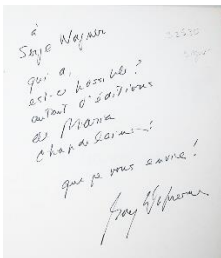 à
Serge Wagner
qui a,
est-ce possible?
autant d'éditions
de Maria
Chapdelaine!
que je vous envie!